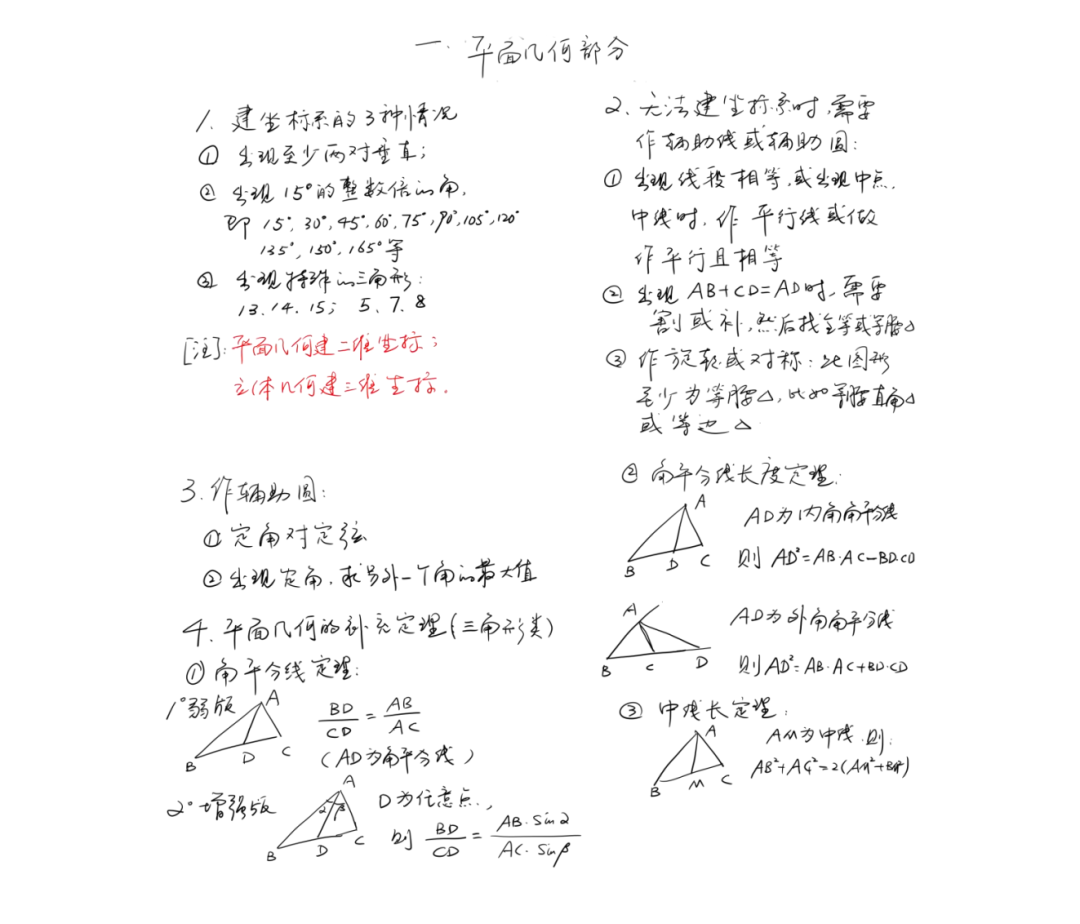 一. 平面几何部分
1. 建坐标系的3种情况
① 出现至少两对垂直;
② 出现15°的整数倍的角,
即 15°, 30°, 45°, 60°, 75°, 90°, 105°, 120°
135°, 150°, 165°等
③ 出现特殊的三角形:
13. 14. 15; 5. 7. 8
[注]: 平面几何建二维坐标;
立体几何建三维坐标.
2. 无法建坐标系时, 需要
作辅助线或辅助圆:
① 出现线段相等, 或出现中点.
中线时, 作 平行线或做
作平行且相等
② 出现 AB+CD=AD时, 需要
割或补, 然后找全等或等腰△
③ 作旋转或对称: 此图形
至少为等腰△, 比如等腰直角△
或等边△
3. 作辅助圆:
① 定角对定弦
② 出现定角, 求另外一个角的最大值
4. 平面几何的补充定理(三角形类)
① 角平分线定理:
1° 弱版
A
B D C
BD/CD = AB/AC
(AD为角平分线)
2° 增强版
A
α β
B D C
D为任意点,
则 BD/CD = AB·Sinα/AC·Sinβ
② 角平分线长度定理:
A
B D C
AD为内角角平分线
则 AD²=AB·AC-BD·CD
A
B C D
AD为外角角平分线
则AD²=AB·AC+BD·CD
③ 中线长定理:
A
B M C
AM为中线, 则:
AB²+AC²=2(AM²+BM²)